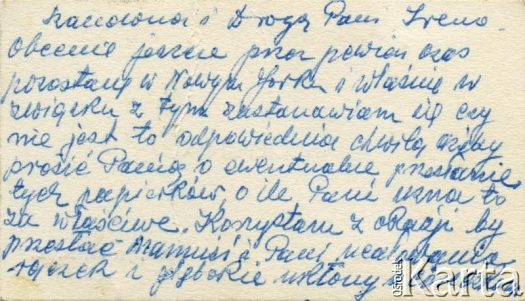 Szanowna i Droga Pani Ireno.
Obecnie jeszcze przez pewien czas
pozostanę w Nowym Jorku i właśnie w
związku z tym zastanawiam się czy
nie jest to odpowiednia chwila ażeby
prosić Panią o ewentualne przesłanie
tych papierków, o ile Pani uzna to
za właściwe. Korzystam z okazji by
przesłać Mamusi i Pani ucałowania
rączek i głębokie ukłony
ośrodek
Karta